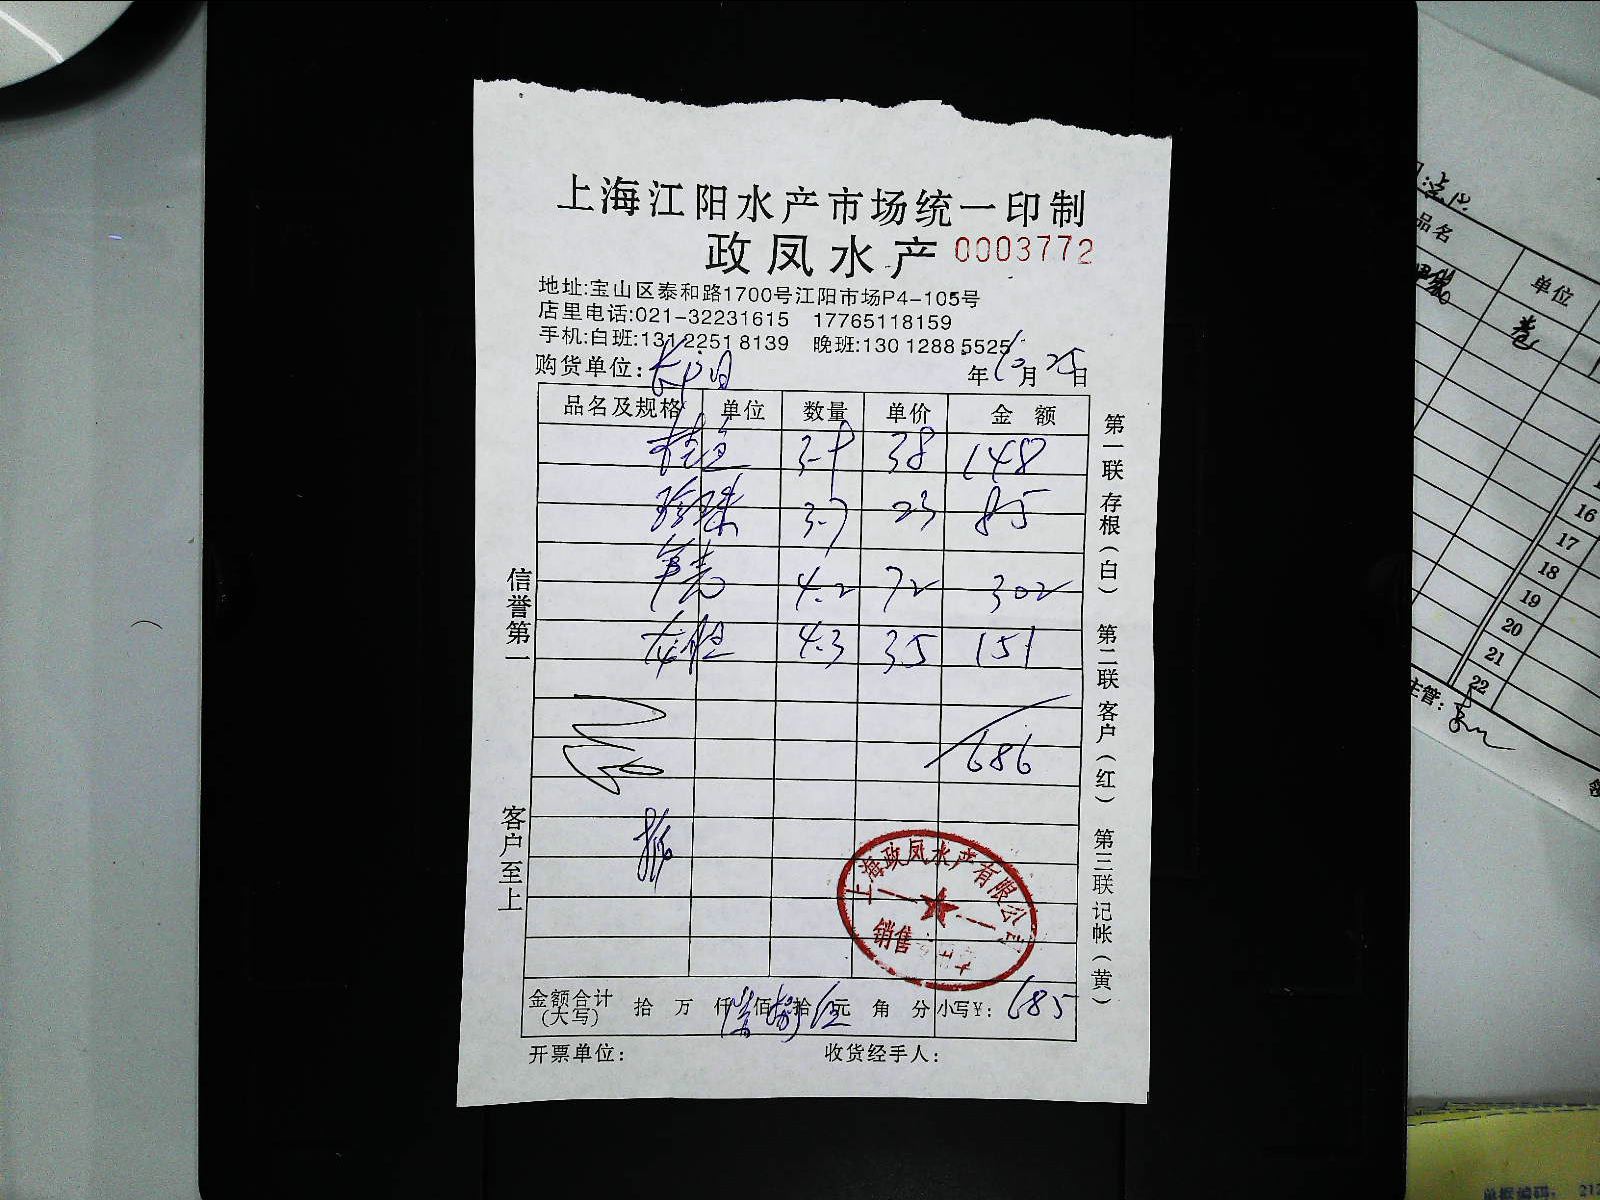 上海江阳水产市场统一印制
政凤水产 0003772
地址:宝山区泰和路1700号江阳市场P4-105号
店里电话:021-32231615 17765118159
手机:白班:131 2251 8139 晚班:130 1288 5525
购货单位: 年 10 月 25 日
品名及规格 单位 数量 单价 金额
桂鱼 3.9 38 148
珍珠 3.7 23 85
4.2 72 302
4.3 35 151
686
上海政凤水产有限公司
销售
金额合计(大写) 拾 万 仟 陆 佰 捌 拾 伍 元 角 分 小写¥: 685
开票单位: 收货经手人:
信誉第一
客户至上
第一联存根(白) 第二联客户(红) 第三联记帐(黄)
品名
单位
卷
16
17
18
19
20
21
22
主管: